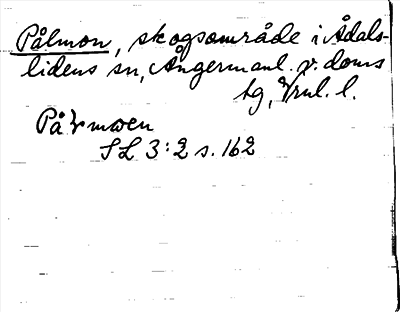 Pålmon, skogsområde i Ådals-
lidens sn, Ångermanl. v. doms
tg, Vnl. l.
På moen
SL 3:2 s. 162